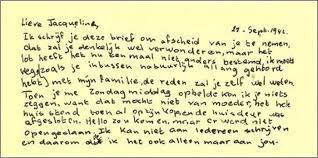 Lieve Jacqueline,
25. Sept. 1942.
Ik schrijf je deze brief om afscheid van je te nemen,
dat zal je denkelijk wel verwonderen, maar het
lot heeft het nu eenmaal niet anders bestemd, ik moet
weg (zoals je intussen natuurlijk allang gehoord
hebt) met mijn familie, de reden zal je zelf wel weten.
Toen je me Zondagmiddag opbelde kon ik je niets
zeggen, want dat mocht niet van moeder, het hele
huis stond toen al op zijn kop en de huisdeur was
afgesloten. Hello zou komen, maar er werd niet
opengedaan. Ik kan niet aan iedereen schrijven
en daarom doe ik het ook alleen maar aan jou.